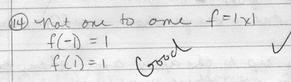 ⑭ Not one to one f=|x|
f(-1) = 1
f(1) = 1 Good ✓